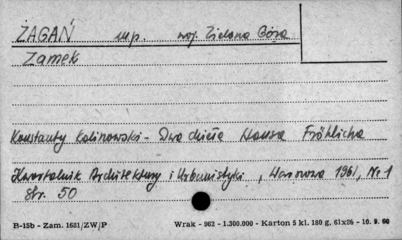 ŻAGAŃ m.p. woj. Zielona Góra
Zamek
Konstanty Kalinowski - Dwa dzieła Hansa Fröhlicha
Kwartalnik Architektury i Urbanistyki, Warszawa 1961, Nr 1
str. 50
B-15b - Zam. 1681/ZW/P Wrak - 962 - 1.300.000 - Karton 5 kl. 180 g, 61x26 - 10. 9. 60